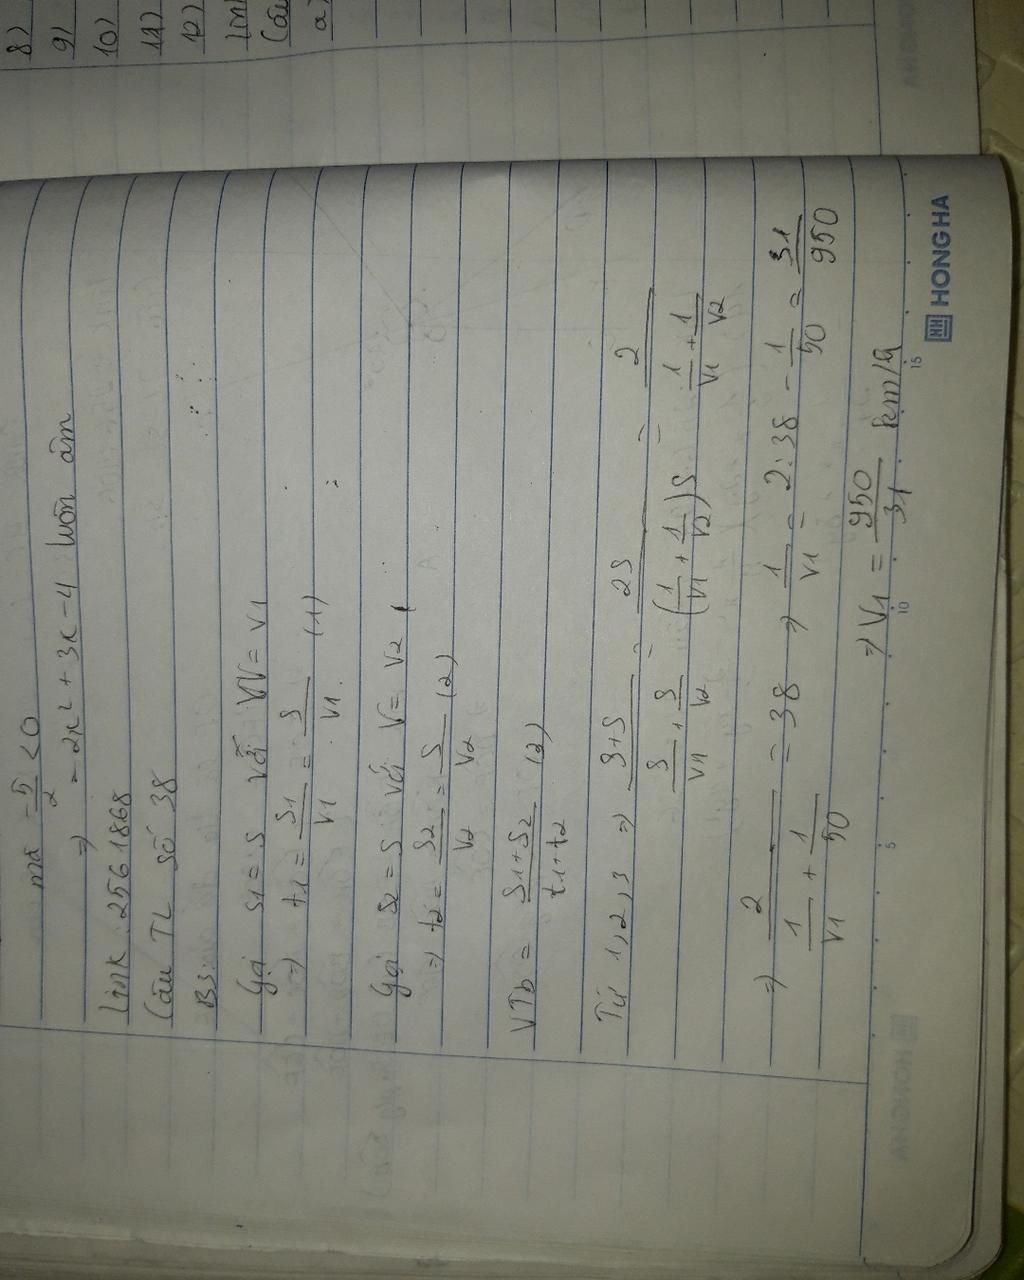 8)
9)
10)
11)
12)
Link
Câu
a)
mà -5/2 < 0
=> -2x² + 3x - 4 luôn âm
Link 2561868
Câu TL số 38
B3:
Gọi S1 = S với V = V1
=> t1 = S1/V1 = S/V1 (1)
Gọi S2 = S với V = V2
=> t2 = S2/V2 = S/V2 (2)
VTb = (S1+S2)/(t1+t2) (3)
Từ 1, 2, 3 => (S+S)/(S/V1 + S/V2) = 2S/((1/V1 + 1/V2)S) = 2/(1/V1 + 1/V2)
=> 2/(1/V1 + 1/50) = 38 => 1/V1 = 2:38 - 1/50 = 31/950
=> V1 = 950/31 km/h
5 10 15
HONG HA